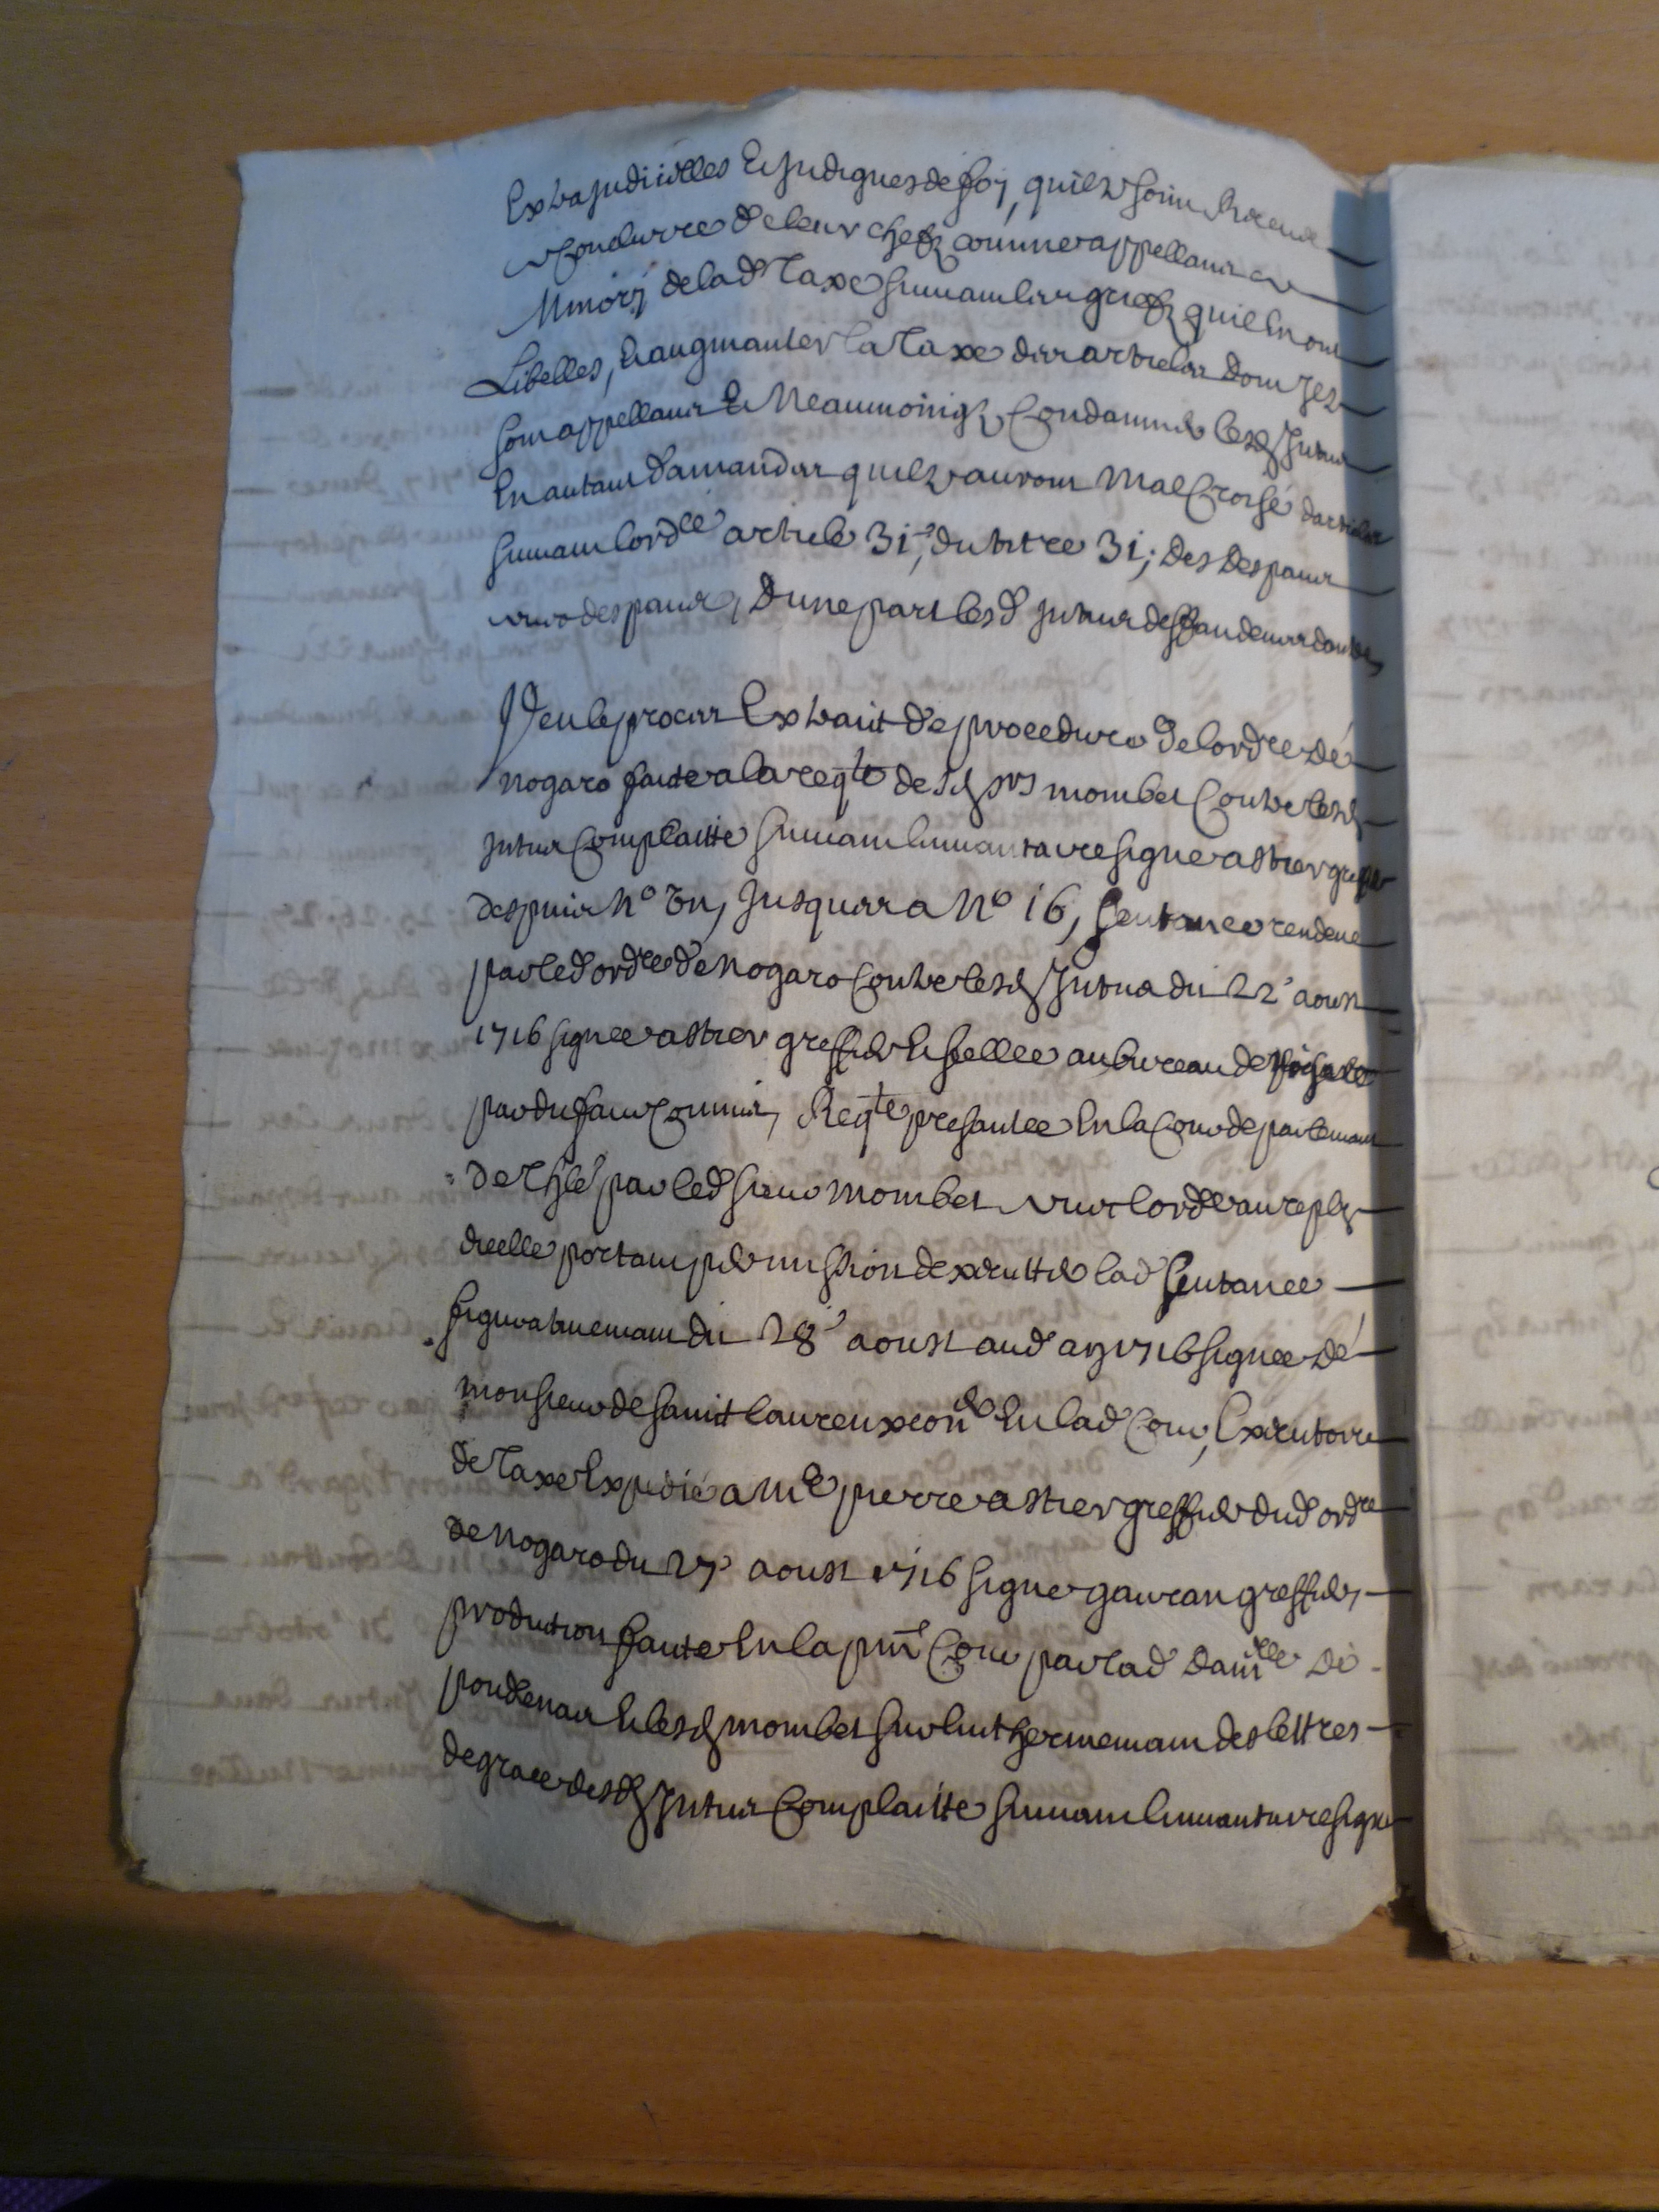 Extrajudicielles et indignes de foy, quilz soint Receus
a conclurre de leur chef comme appellans a
Minory de lad Taxe suivant leur griefz quil en ont
Libelles, et augmanter la Taxe des articles dont ilz
sont appellans et Neaumoingz Condamner lesd Intras
En autant damandes quilz auront Mal Croisé darticles
suivant lordce article 31e du titre 31, des despans
avec despans, Dune part lesd Intras deffandeurs dautre,
Veu le procès Extrait de procedure de lordre de
nogaro faite a la reqte desd srs mombet Contre lesd
Intras Complaitte suivant linvantaire signé astier greffier
despuis No un, Jusques a No 16, Sentance rendue
par led ordre de nogaro Contre lesd Intras du 22e aoust
1716 signée astier greffier et sellée au bureau de nogaro
par dufau Commis, Reqte presantée En la Cour de parlemant
de Thle par led sieur mombet avec lordce au reply
dicelle portant permission dexecutter lad Sentance
figurativemant du 28e aoust aud an 1716 signée de
monsieur de saint laurens conder En lad Cour, Executoire
de Taxe Expedié a Me pierre astier greffier dud ordre
de Nogaro du 27e aoust 1716 signé gauran greffier,
production faite En la pnte Cour par lad damlle de
pondenas et lesd mombet sur lintherinemant des lettres
de grace desd Intras Complaitte suivant linvantaire signé